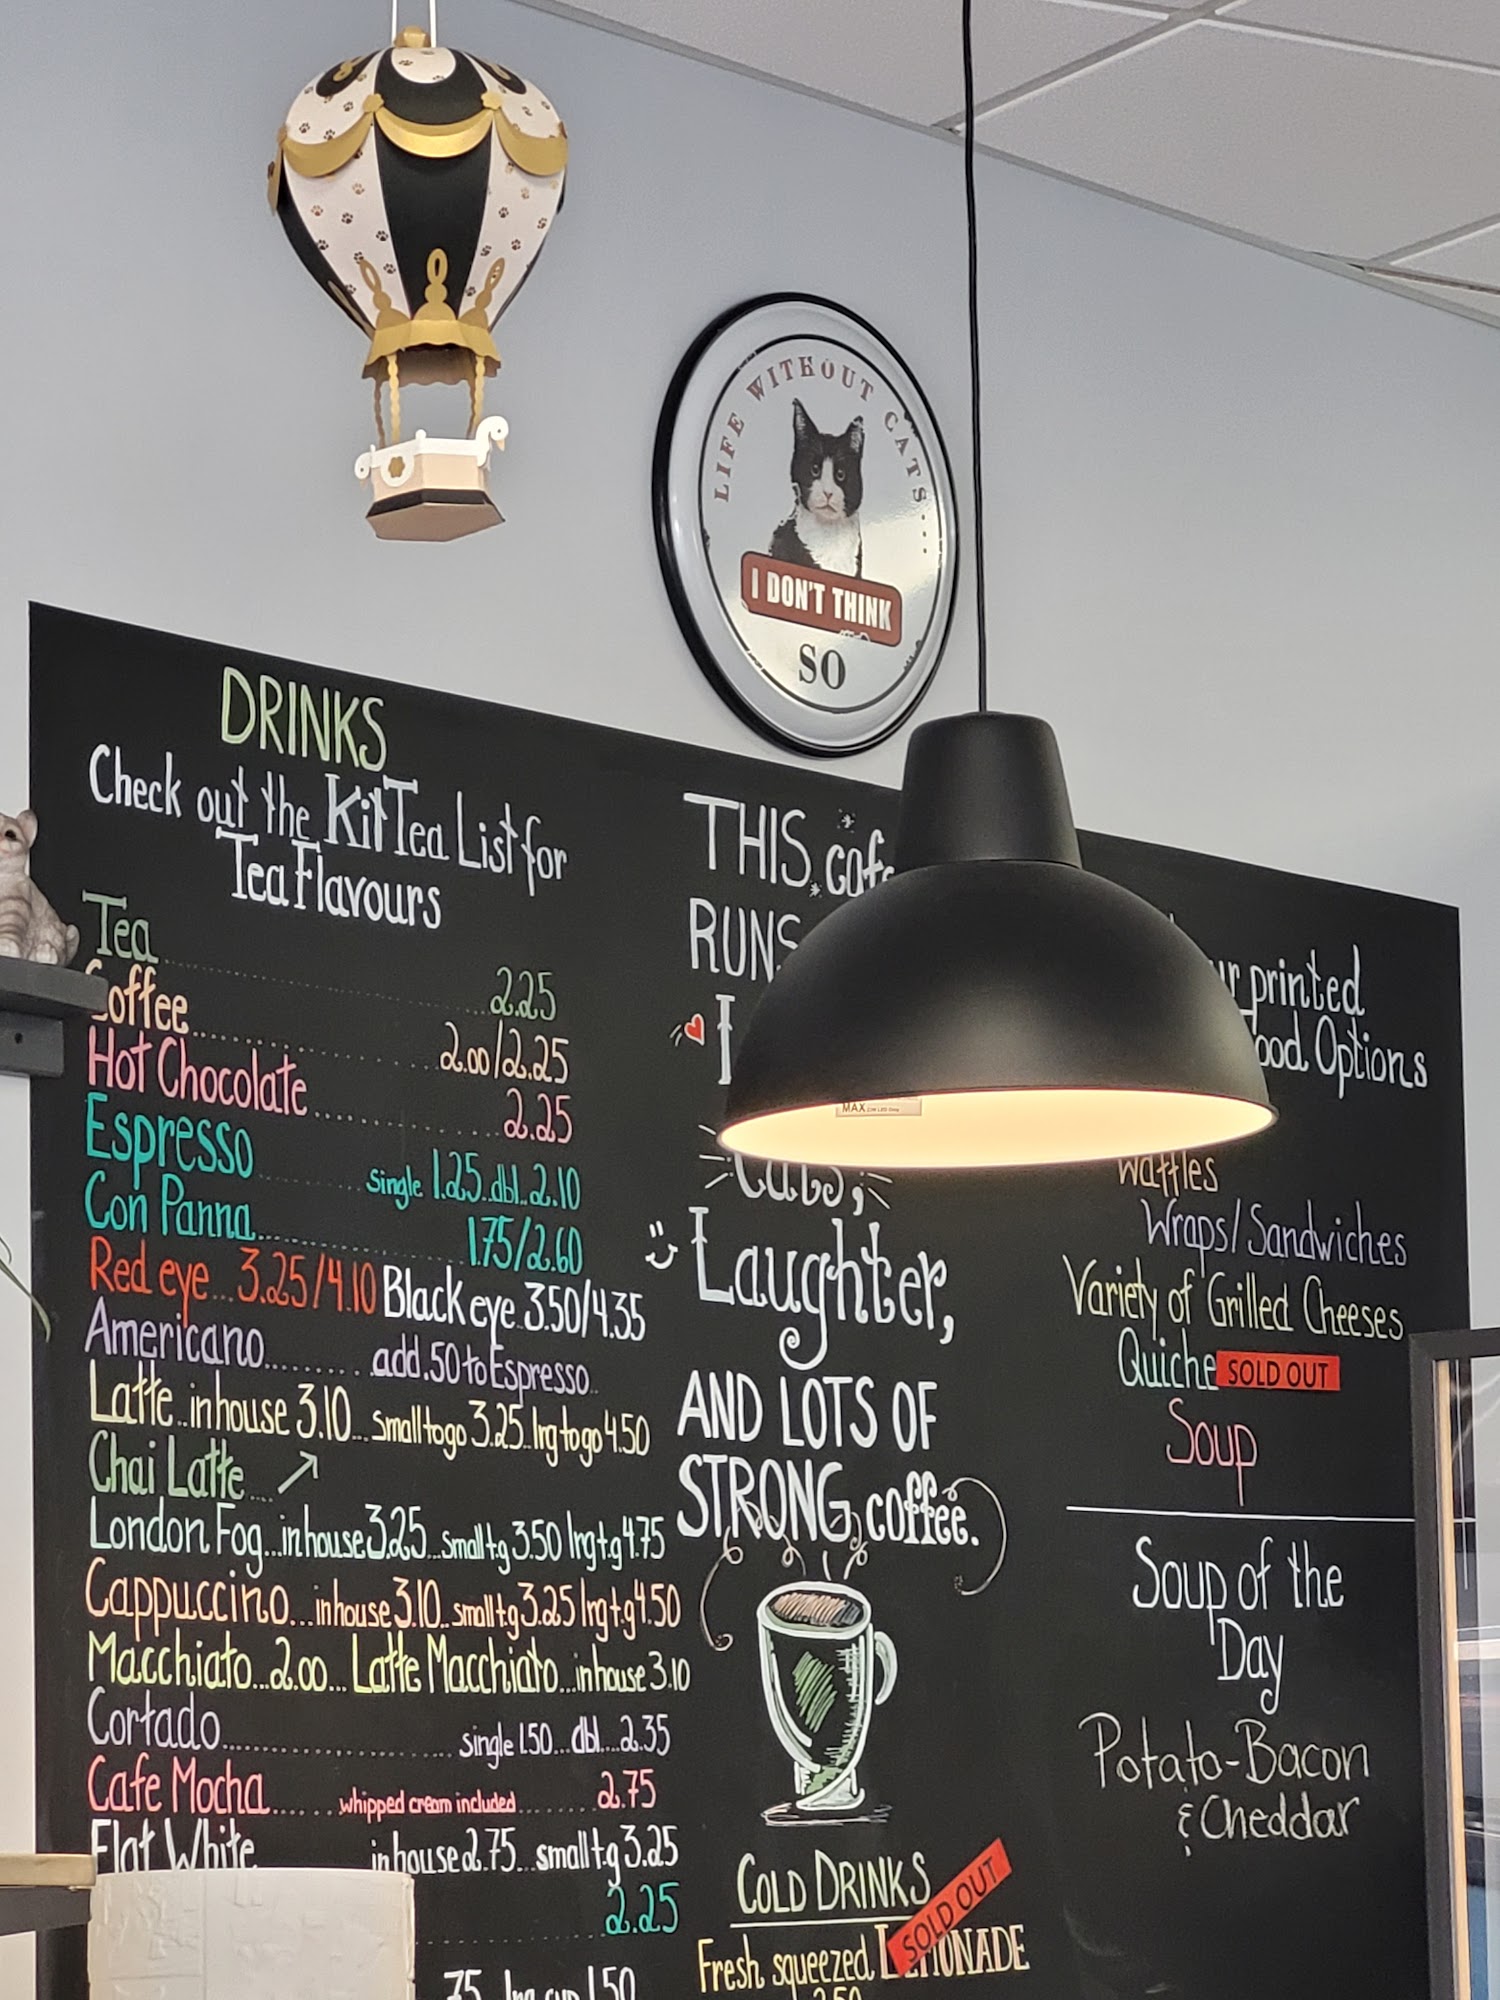 LIFE WITHOUT CATS....
I DON'T THINK
SO
DRINKS
Check out the KitTea List for
Tea Flavours
Tea 2.25
Coffee 2.00/2.25
Hot Chocolate 2.25
Espresso single 1.25..dbl..2.10
Con Panna 1.75/2.60
Red eye...3.25/4.10 Black eye 3.50/4.35
Americano add .50 to Espresso
Latte..in house 3.10...small to go 3.25..lrg to go 4.50
Chai Latte ↗
London Fog...in house 3.25...small t.g 3.50 lrg t.g 4.75
Cappuccino...in house 3.10..small t.g 3.25 lrg t.g 4.50
Macchiato...2.00... Latte Macchiato...in house 3.10
Cortado single 1.50...dbl...2.35
Cafe Mocha whipped cream included 2.75
Flat White in house 2.75...small t.g 3.25
2.25
.75 lrg cup 1.50
THIS cafe
RUNS
Cats,
Laughter,
AND LOTS OF
STRONG coffee.
COLD DRINKS
Fresh squeezed LEMONADE
SOLD OUT
2.50
MAX
printed
Food Options
Waffles
Wraps/Sandwiches
Variety of Grilled Cheeses
Quiche SOLD OUT
Soup
Soup of the
Day
Potato-Bacon
& Cheddar